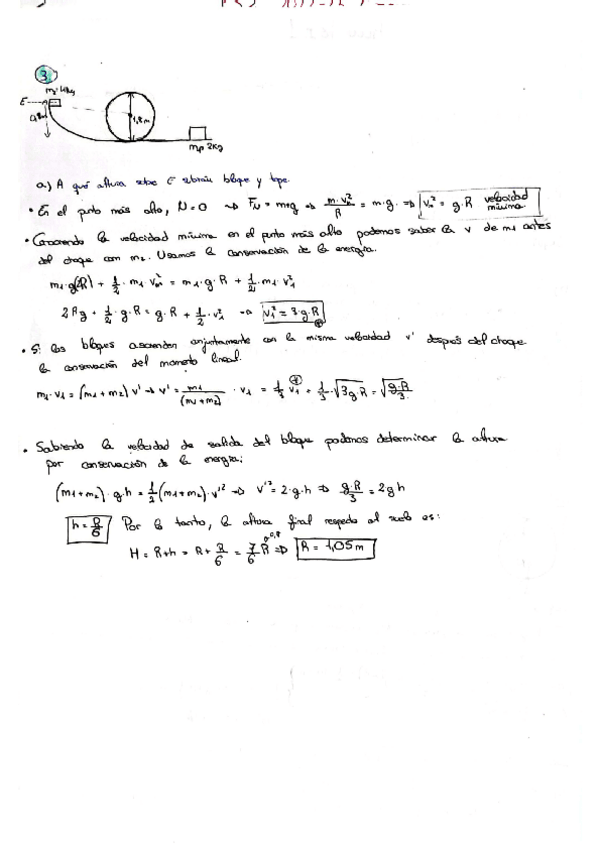 3.
E
0,8m
1,8m
2kg
a) A qué altura sobre E subirán bloque y tope.
• En el punto más alto, N=0 → F_N = m·g ⇒ m·v²/R = m·g ⇒ v² = g·R velocidad mínima
• Conociendo la velocidad mínima en el punto más alto podemos saber la v de m1 antes
del choque con m2. Usamos la conservación de la energía.
m1·g(2R) + 1/2·m1·v² = m1·g·R + 1/2·m1·v1²
2Rg + 1/2·g·R = g·R + 1/2·v1² → v1² = 3·g·R
• Si los bloques ascienden conjuntamente con la misma velocidad v' después del choque
la conservación del momento lineal.
m1·v1 = (m1+m2) v' → v' = m1/(m1+m2) · v1 = 1/3 v1 = 1/3·√3g·R = √g·R/3
• Sabiendo la velocidad de salida del bloque podemos determinar la altura
por conservación de la energía:
(m1+m2)·g·h = 1/2(m1+m2)·v'² ⇒ v'² = 2·g·h ⇒ g·R/3 = 2gh
h = R/6 Por lo tanto, la altura final respecto al suelo es:
H = R+h = R + R/6 = 7/6 R ⇒ R = 1,05m